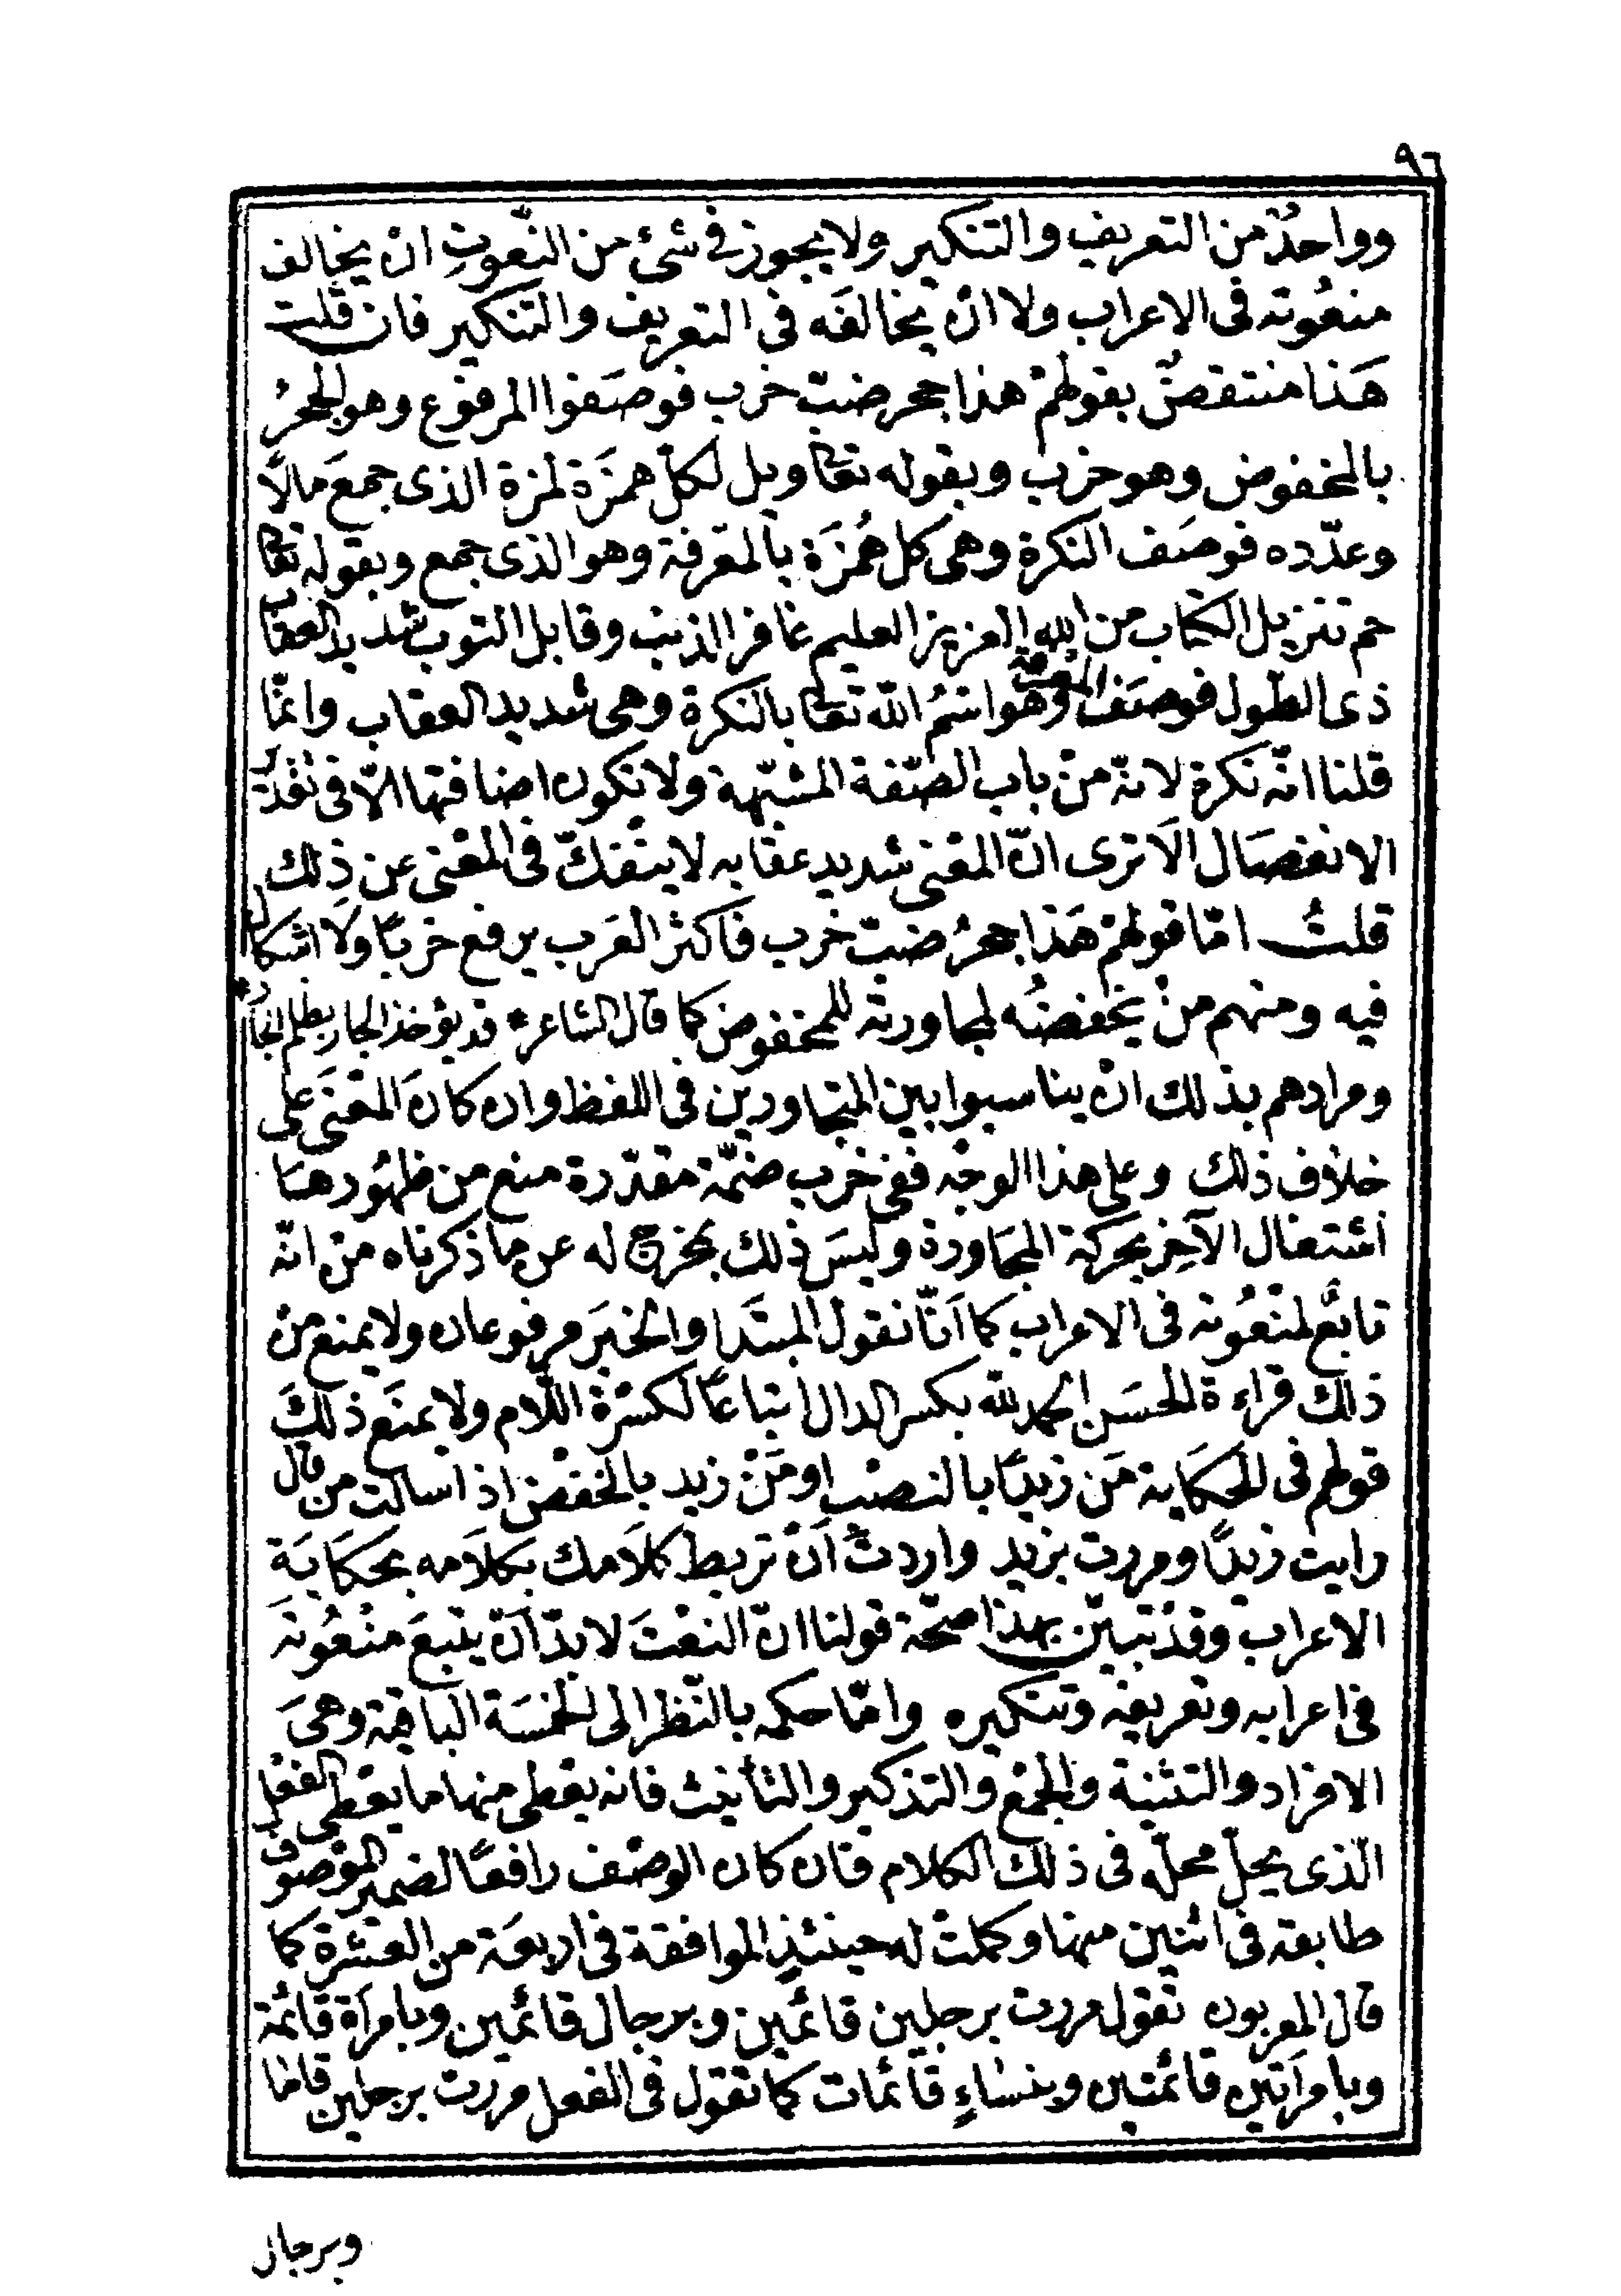 ٩٦
وواحدٌ من التعريف والتنكير ولا يجوز فى شئ من النّعوتِ ان يخالف
منعُوته فى الاعراب ولا انْ يخالفَه فى التعريف والتنكير فان قلت
هَذا منتقضٌ بقولهمْ هذا جحر ضبّ خرب فوصَفوا المرفوع وهو الجحرُ
بالمخفوض وهو خرب وبقوله تعا ويل لكل همزَة لمزة الذى جمعَ مالًا
وعدّده فوصَف النكرة وهى كل هُمزَة بالمعرفة وهو الذى جمع وبقوله تعا
حم تنزيل الكتاب من الله العزيز العليم غافر الذنب وقابل التوب شديد العقاب
ذى الطول فوصَف المعرفة وهو اسْمُ اللّه تعا بالنكرة وهى شديد العقاب وانمّا
قلنا انّه نكرة لانّه منْ باب الصّفة المشبّهة ولا تكون اضافتها الّا فى تقدير
الانفصَال الَا ترى انّ المعْنى شديد عقابه لا ينْفكّ فى المعْنى عن ذِلك
قلتُ امّا قولهمْ هَذا جحرُ ضبّ خرب فاكثر العَرب يرفع خربًا ولَا اشكال
فيه ومنهم منْ يخفضُه لمجاورته للمخفوض كما قال الشاعر * قد يؤخذ الجار بظلم الجار *
ومرادهم بذلك انْ يناسبوا بين المتجاورين فى اللفظ وان كانَ المعْنَى على
خلاف ذلك وعلى هذا الوجْه ففى خرب ضمّة مقدّرة منع من ظهُورهَا
اشتغال الآخِر بحركة المجَاورة وليسَ ذلك بمخرج له عن ما ذكرناه منْ انّه
تابعٌ لمنْعُوته فى الاعراب كما اَنّا نقول المبتَدا والخبَر مرفوعان ولا يمنع منْ
ذلك قراءة الحسَن الحمدِ لله بكسر الدال اتباعًا لكسْرة اللّام ولا يمنَع ذلكَ
قولهم فى الحكَاية مَن زيدًا بالنصْب او مَنْ زيد بالخفض اذا سالت من قال
رايت زيدًا ومررت بزيد واردتْ اَنْ تربط كلَامك بكلَامه بحكَايَة
الاعراب وقدْ تبيّن بهذا صحّة قولنا انّ النعْتَ لا بدّ اَنْ يتْبعَ منْعُوتَه
فى اعرابه وتعريفه وتنكيره وامّا حكمه بالنّظر الى الخمْسَة الباقية وهىَ
الافراد والتثنية والجمْع والتذكير والتأنيث فانه يعْطى منها ما يعْطى الفعْل
الّذى يحلّ محلّه فى ذلك الكلام فان كان الوصْف رافعًا لضمير الموْصوف
طابقه فى اثنين منها وكملتْ له حينئذٍ الموافقة فى اربعَة من العشْرة كما
قال المعربون تقول مررت برجلين قائمين وبرجال قائمين وبامرأة قائمة
وبامرَاتين قائمتين وبنسَاءٍ قائمات كما تقول فى الفعل مررت برجلين قاما
وبرجال